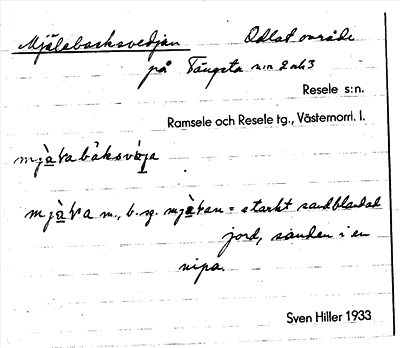 Mjälabacksvedjan Odlat område
på Tängsta n:r 2 och 3
Resele s:n.
Ramsele och Resele tg., Västernorrl. l.
mjàɫa m., b. sg. mjàɫan = starkt sandblandad
jord, sanden i en
nipa.
Sven Hiller 1933